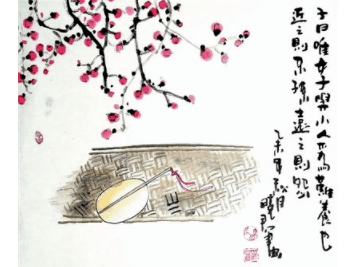 子曰唯女子與小人爲難養也
近之則不孫遠之則怨
乙未年秋月